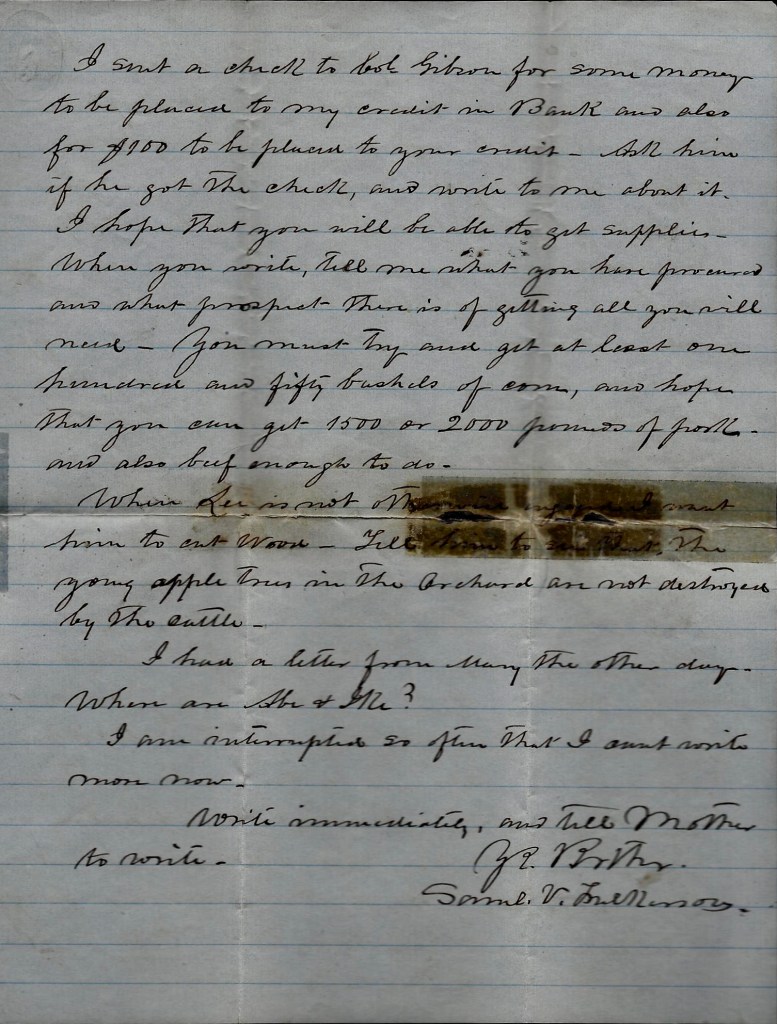 I sent a check to Col. Gibson for some money
to be placed to my credit in Bank and also
for $100 to be placed to your credit - Ask him
if he got the check, and write to me about it.
I hope that you will be able to get supplies -
When you write, tell me what you have procured
and what prospect there is of getting all you will
need - You must try and get at least one
hundred and fifty bushels of corn, and hope
that you can get 1500 or 2000 pounds of pork -
and also beef enough to do -
When Lee is not otherwise engaged I want
him to cut wood - Tell him to see that, the
young apple trees in the Orchard are not destroyed
by the cattle -
I had a letter from Mary the other day -
Where are Abe & Ike?
I am interrupted so often that I cant write
more now -
Write immediately, and tell Mother
to write -
Yr. Brother.
Saml. V. Fulkerson -